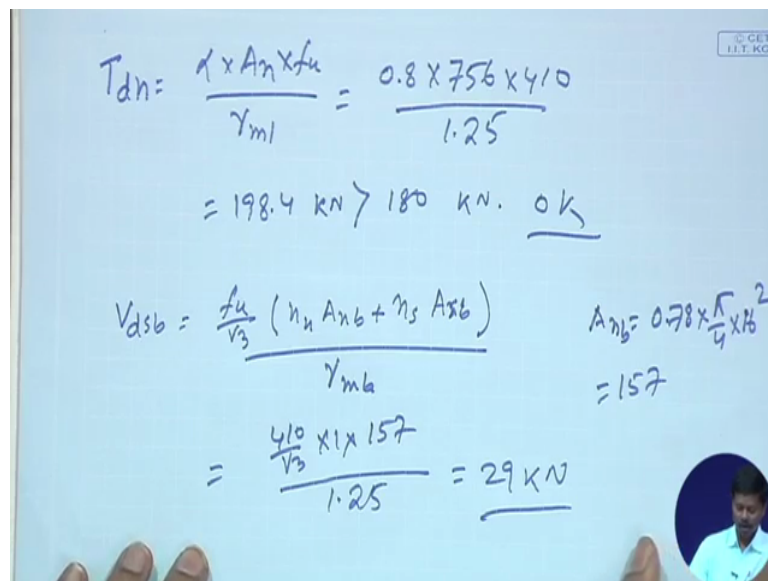 © CET
I.I.T. KG
Tdn = α × An × fu / γm1 = 0.8 × 756 × 410 / 1.25
= 198.4 KN > 180 KN. OK
Vdsb = fu/√3 (nn Anb + ns Asb) / γmb
Anb = 0.78 × π/4 × 16²
= 157
= 410/√3 × 1 × 157 / 1.25 = 29 KN